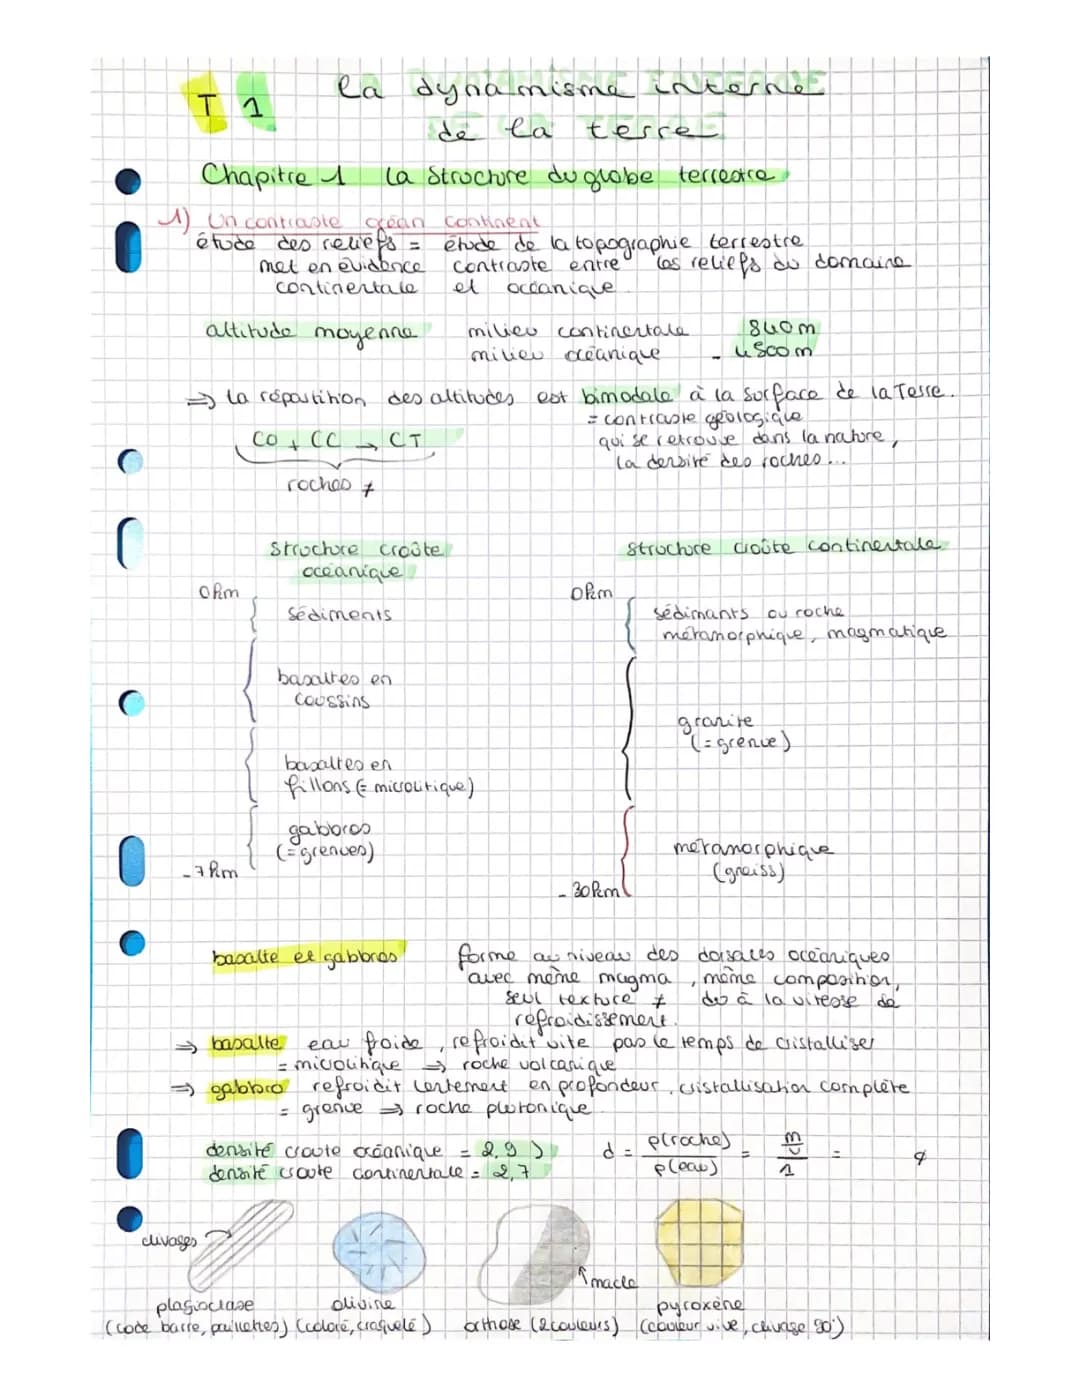 T 1
La dynamisme interne
de la terre
Chapitre 1 La Structure du globe terrestre
1) Un contraste océan continent
étude des reliefs = étude de la topographie terrestre
met en évidence contraste entre les reliefs du domaine
continentale et océanique.
altitude moyenne milieu continentale 840m
milieu océanique - 4500m
⇒ la répartition des altitudes est bimodale à la surface de la Terre.
= contraste géologique
qui se retrouve dans la nature,
la densité des roches...
CO + CC → CT
roches ≠
Structure croûte océanique
Structure croûte continentale
0km
Sédiments
basaltes en
coussins
basaltes en
fillons (= microlitique)
gabbros
(= grenues)
- 7km
0km
sédimants ou roche
métamorphique, magmatique
granite
(= grenue)
métamorphique
(gneiss)
- 30km
basalte et gabbros forme au niveau des dorsales océaniques
avec même magma, même composition,
seul texture ≠ du à la vitesse de
refroidissement.
⇒ basalte eau froide, refroidit vite pas le temps de cristalliser
= microlitique ⇒ roche volcanique
⇒ gabbro refroidit lentement en profondeur, cristallisation complète
= grenue ⇒ roche plutonique
densité croute océanique = 2,9
densité croute continentale = 2,7
d = ρ(roche) / ρ(eau) = m/v / 1 =
clivages
macle
plagioclase
(code barre, paillettes)
olivine
(coloré, craquelé)
orthose (2 couleurs)
pyroxène
(couleur vive, clivage 90°)